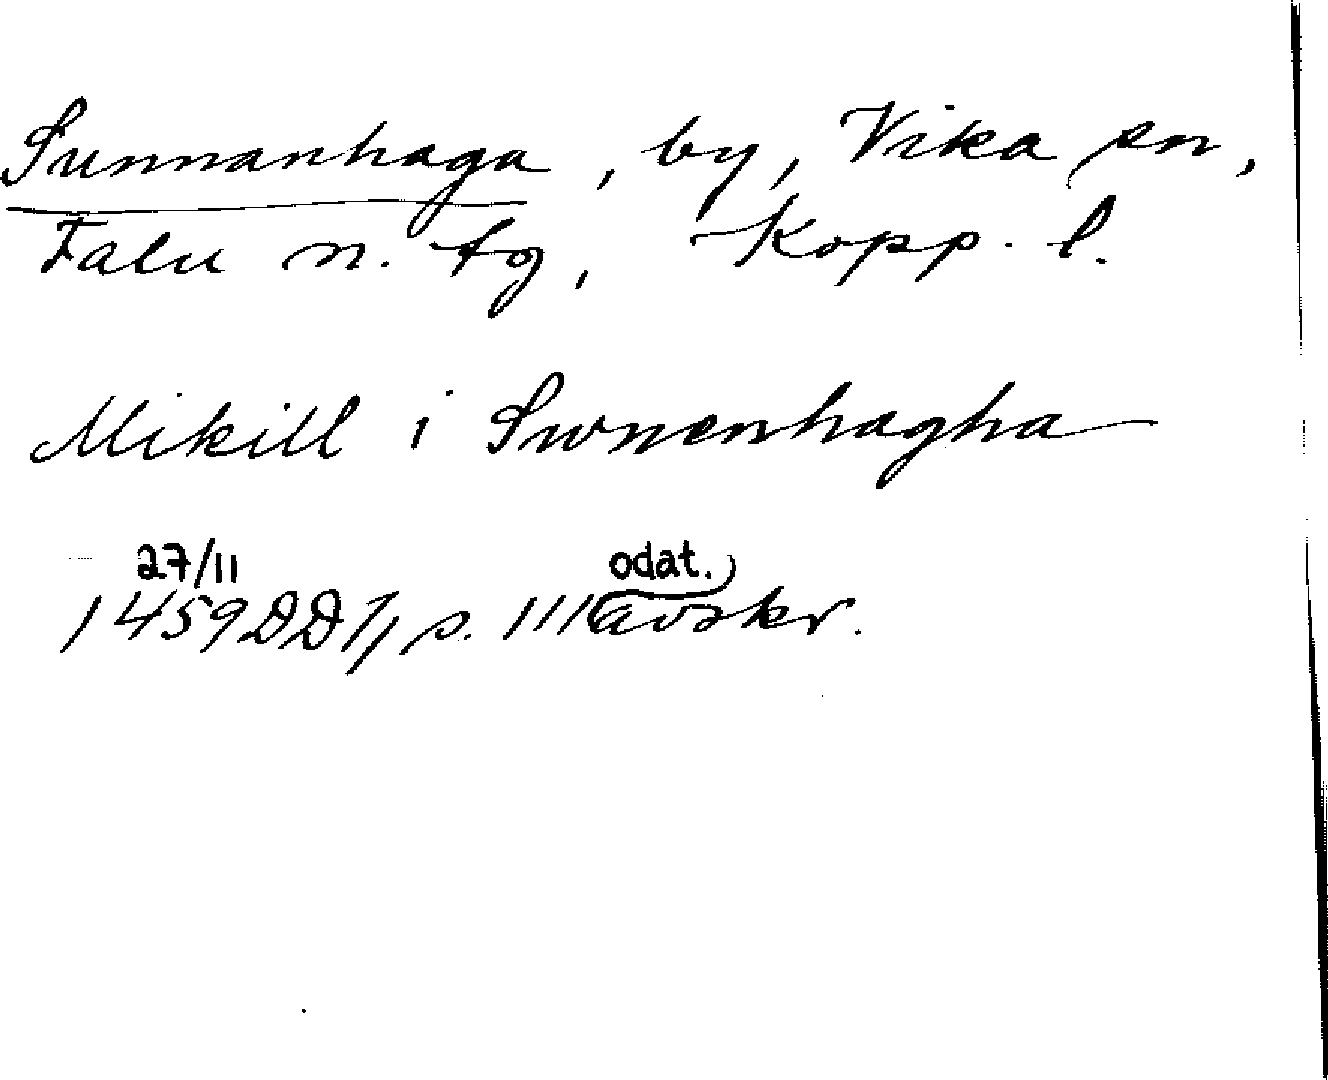 Sunnanhaga, by, Vika sn,
Falu n. tg, Kopp. l.
Mikill i Swnenhagha
27/11 odat.
1459 DD 1/1 s. 111 avskr.